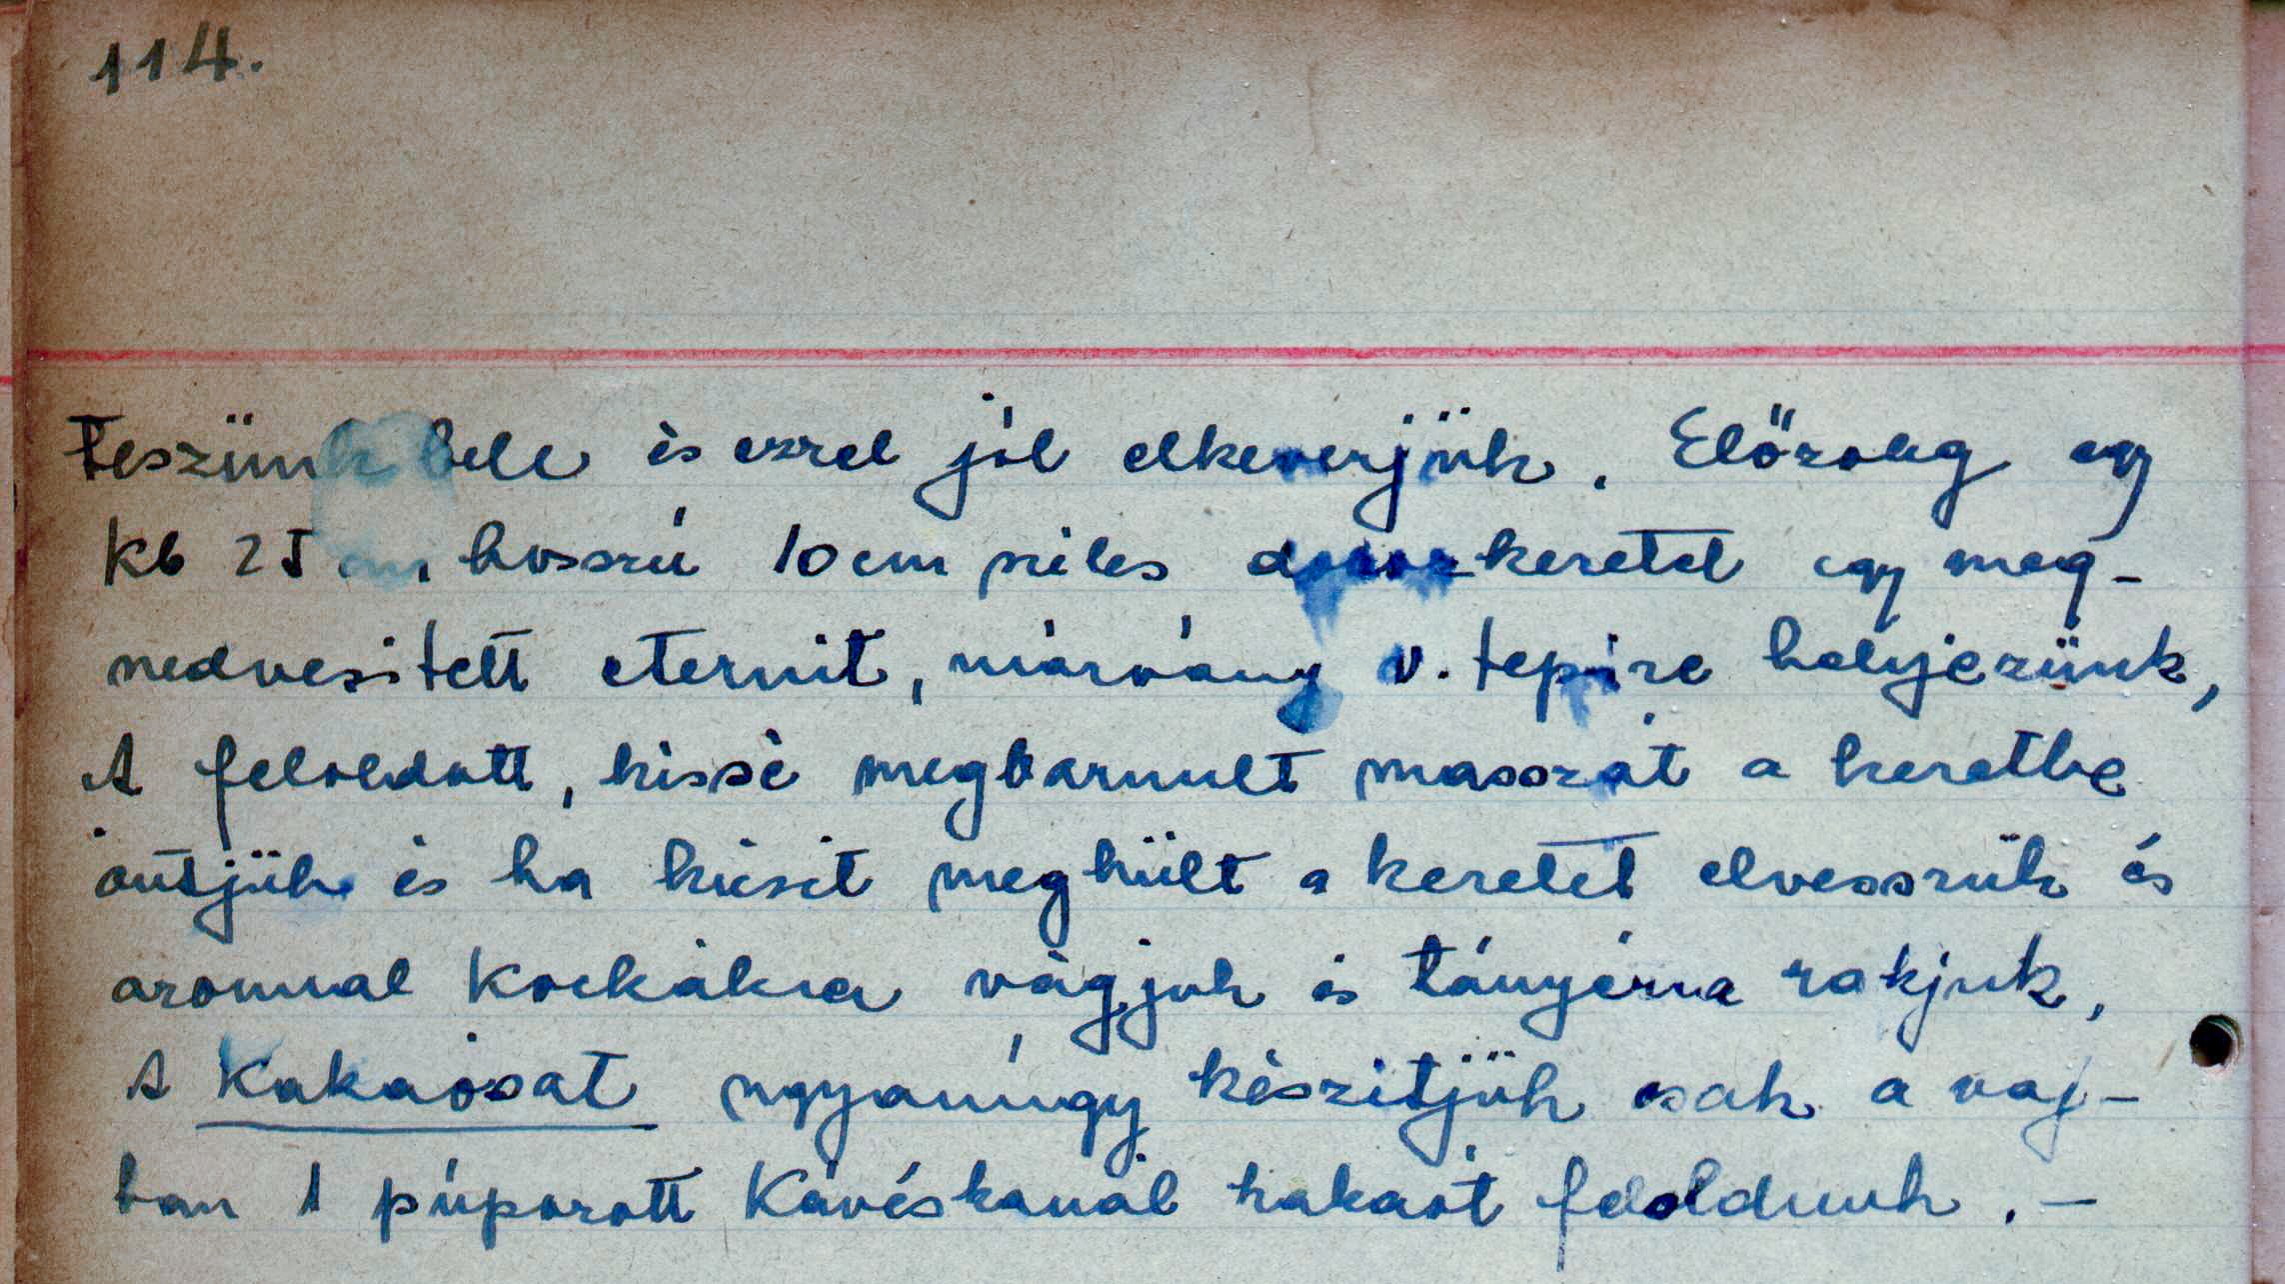 114.
teszünk bele és ezzel jól elkeverjük. Előzőleg egy
kb 25 cm hosszú 10 cm széles dobozkeretet egy meg-
nedvesitett eternit, márvány v. tepsire helyezünk,
A feloldott, kissé megbarnult masszát a keretbe
öntjük és ha kicsit meghült a keretet elvesszük és
azonnal kockákra vágjuk és tányérra rakjuk,
A Kakaósat ugyanúgy készitjük csak a vaj-
ban 1 púpozott Kávéskanál kakaót feloldunk. -